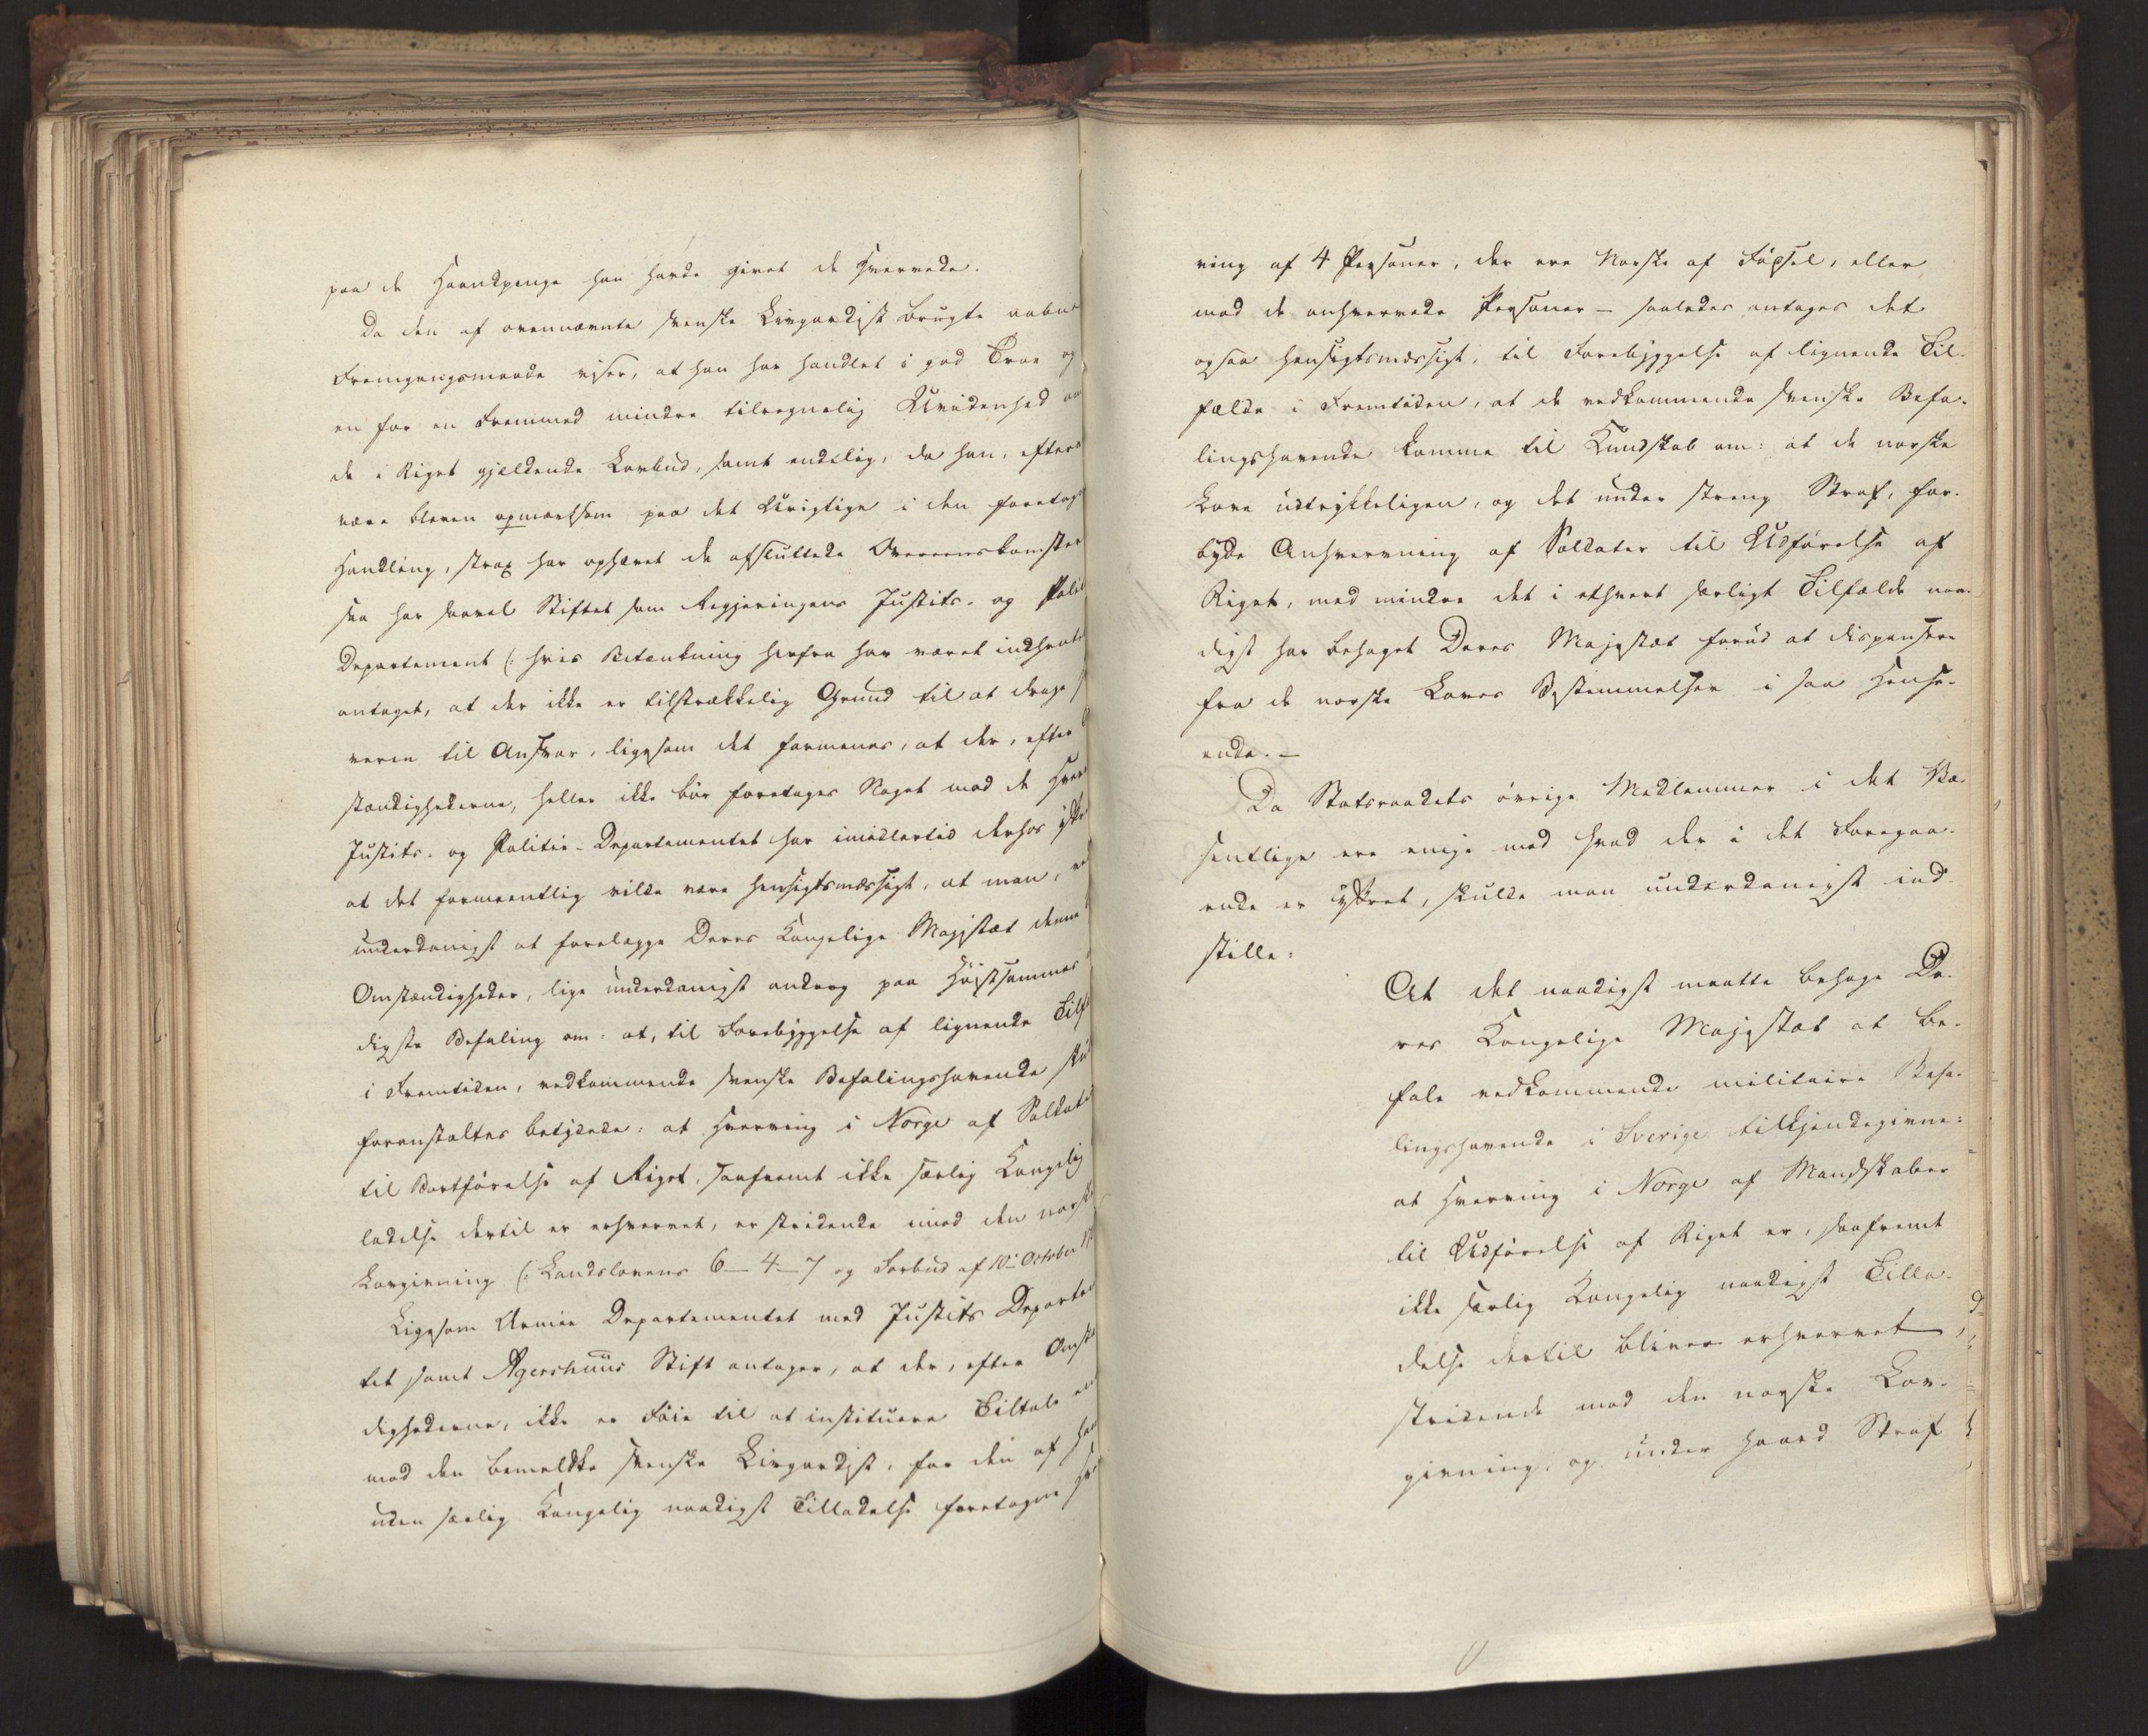 paa de Haandpenge han havde givet de Hververde.
Da den af ovennævnte svenske Livgardist brugte aabne
Fremgangsmaade viser, at han har handlet i god Troe og
en for en Fremmed mindre tilregnelig Uvidenhed om
de i Riget gjeldende Lovbud, samt endelig, da han, efter at
være bleven opmærksom paa det Urigtige i den foretagne
Handling, strax har ophævet de afsluttede Overeenskomster
saa har saavel Stiftet som Regjeringens Justits- og Politi
Departement (: hvis Betænkning herfra har været indhentet
antaget, at der ikke er tilstrækkelig Grund til at drage
veren til Ansvar, ligesom det formenes, at der, efter
stændighederne, heller ikke bør foretages Noget mod de Hver
Justits- og Politie-Departementet har imidlertid derhos yttret
at det formeentlig vilde være hensigtsmæssigt, at man, ved
underdanigst at forelægge Deres Kongelige Majestæt denne
Omstændigheder, lige underdanigst androg paa Høistsammes
digste Befaling om: at, til Forebyggelse af lignende Tilf
i Fremtiden, vedkommende svenske Befalingshavende skul
foranstaltes betydede: at Hverving i Norge af Soldater
til Bortførelse af Riget, saafremt ikke særlig Kongelig
ladelse dertil er erhvervet, er stridende imod den norske
Lovgivning (: Landslovens 6-4-7 og Forbud af 10de October 17
Ligesom Armee Departementet med Justits Departe
tet samt Agershuus Stift antager, at der, efter Omst
dighederne, ikke er Føie til at instituere Tiltale
mod den bemeldte svenske Livgardist, for den af ham
uden særlig Kongelig naadigst Tilladelse foretagne Hver
ving af 4 Personer, der ere Norske af Fødsel, eller
mod de anhvervede Personer - saaledes antages det
ogsaa hensigtsmæssigt, til Forebyggelse af lignende Til-
fælde i Fremtiden, at de vedkommende svenske Befa-
lingshavende komme til Kundskab om: at de norske
Love udtrykkeligen, og det under streng Straf, for-
byde Anhvervning af Soldater til Udførelse af
Riget, med mindre det i ethvert særligt Tilfælde naa-
digst har behaget Deres Majestæt forud at dispensere
fra de norske Loves Bestemmelser i saa Hense-
ende. -
Da Statsraadets øvrige Medlemmer i det Væ-
sentlige ere enige med hvad der i det Foregaa-
ende er yttret, skulde man underdanigst ind-
stille:
At det naadigst maatte behage De-
res Kongelige Majestæt at be-
fale vedkommende militaire Befa-
lingshavende i Sverige tilkjendegivne:
at Hverving i Norge af Mandskaber
til Udførelse af Riget er, saafremt
ikke særlig Kongelig naadigst Tilla-
delse dertil bliver erhvervet,
stridende mod den norske Lov-
givning, og under haard Straf